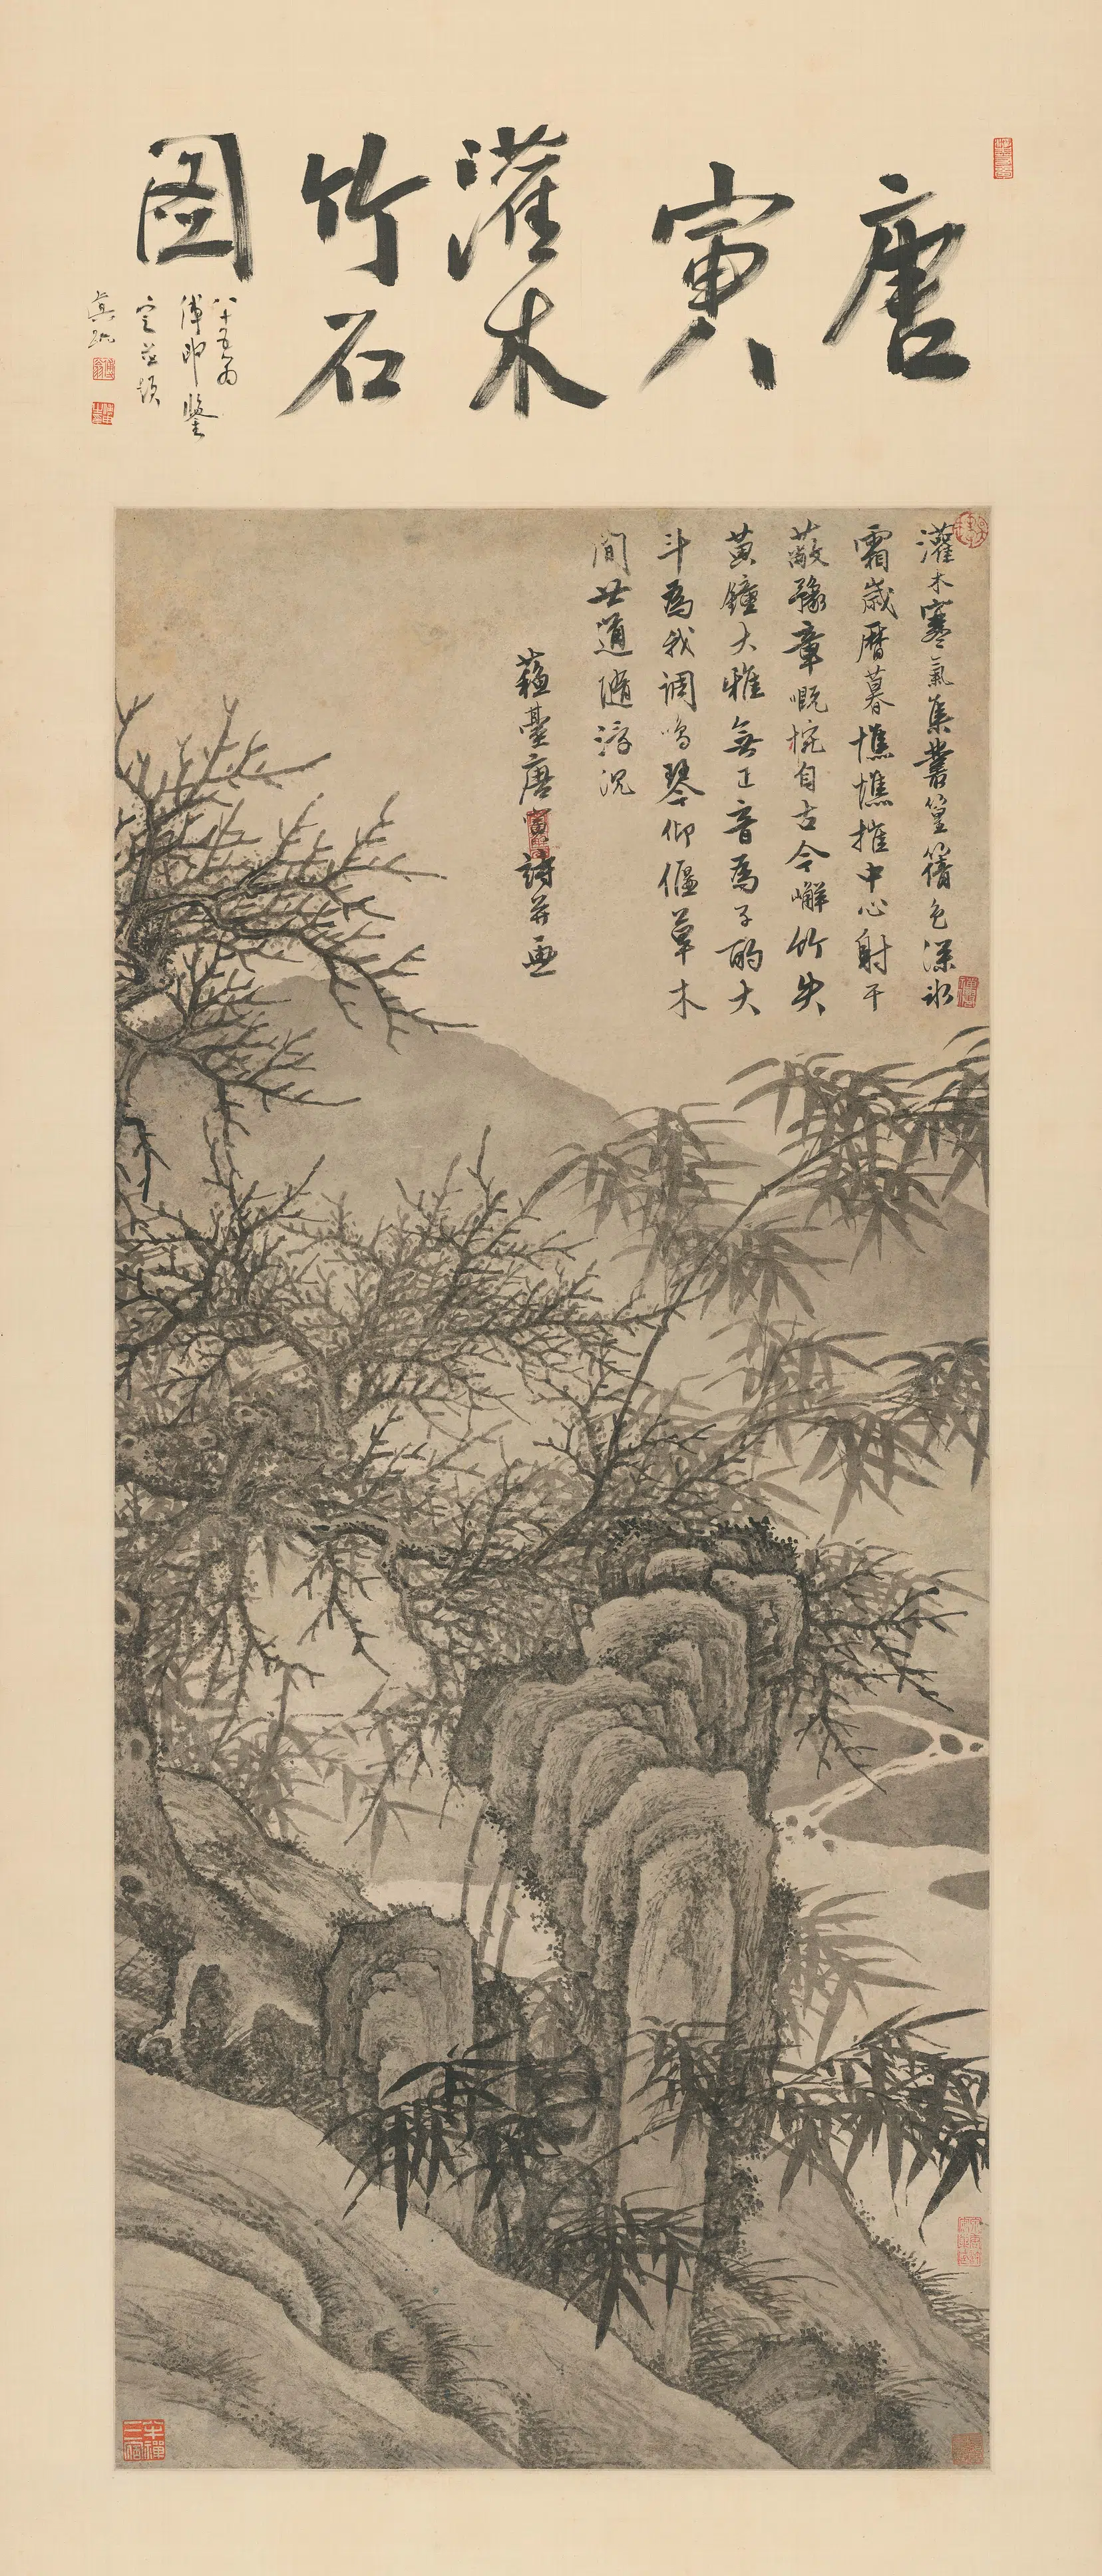 唐寅灌木竹石圖
八十五翁
傅申鑒
定並題
真跡
灌木寒氣集叢篁籜色深冰
霜歲曆暮憔憔摧中心射干
蔽豫章慨惋自古今嶰竹失
黃鐘大雅無正音為子酌大
斗為我調鳴琴仰偃草木
間世道隨浮沉
蘇臺唐寅詩并畫